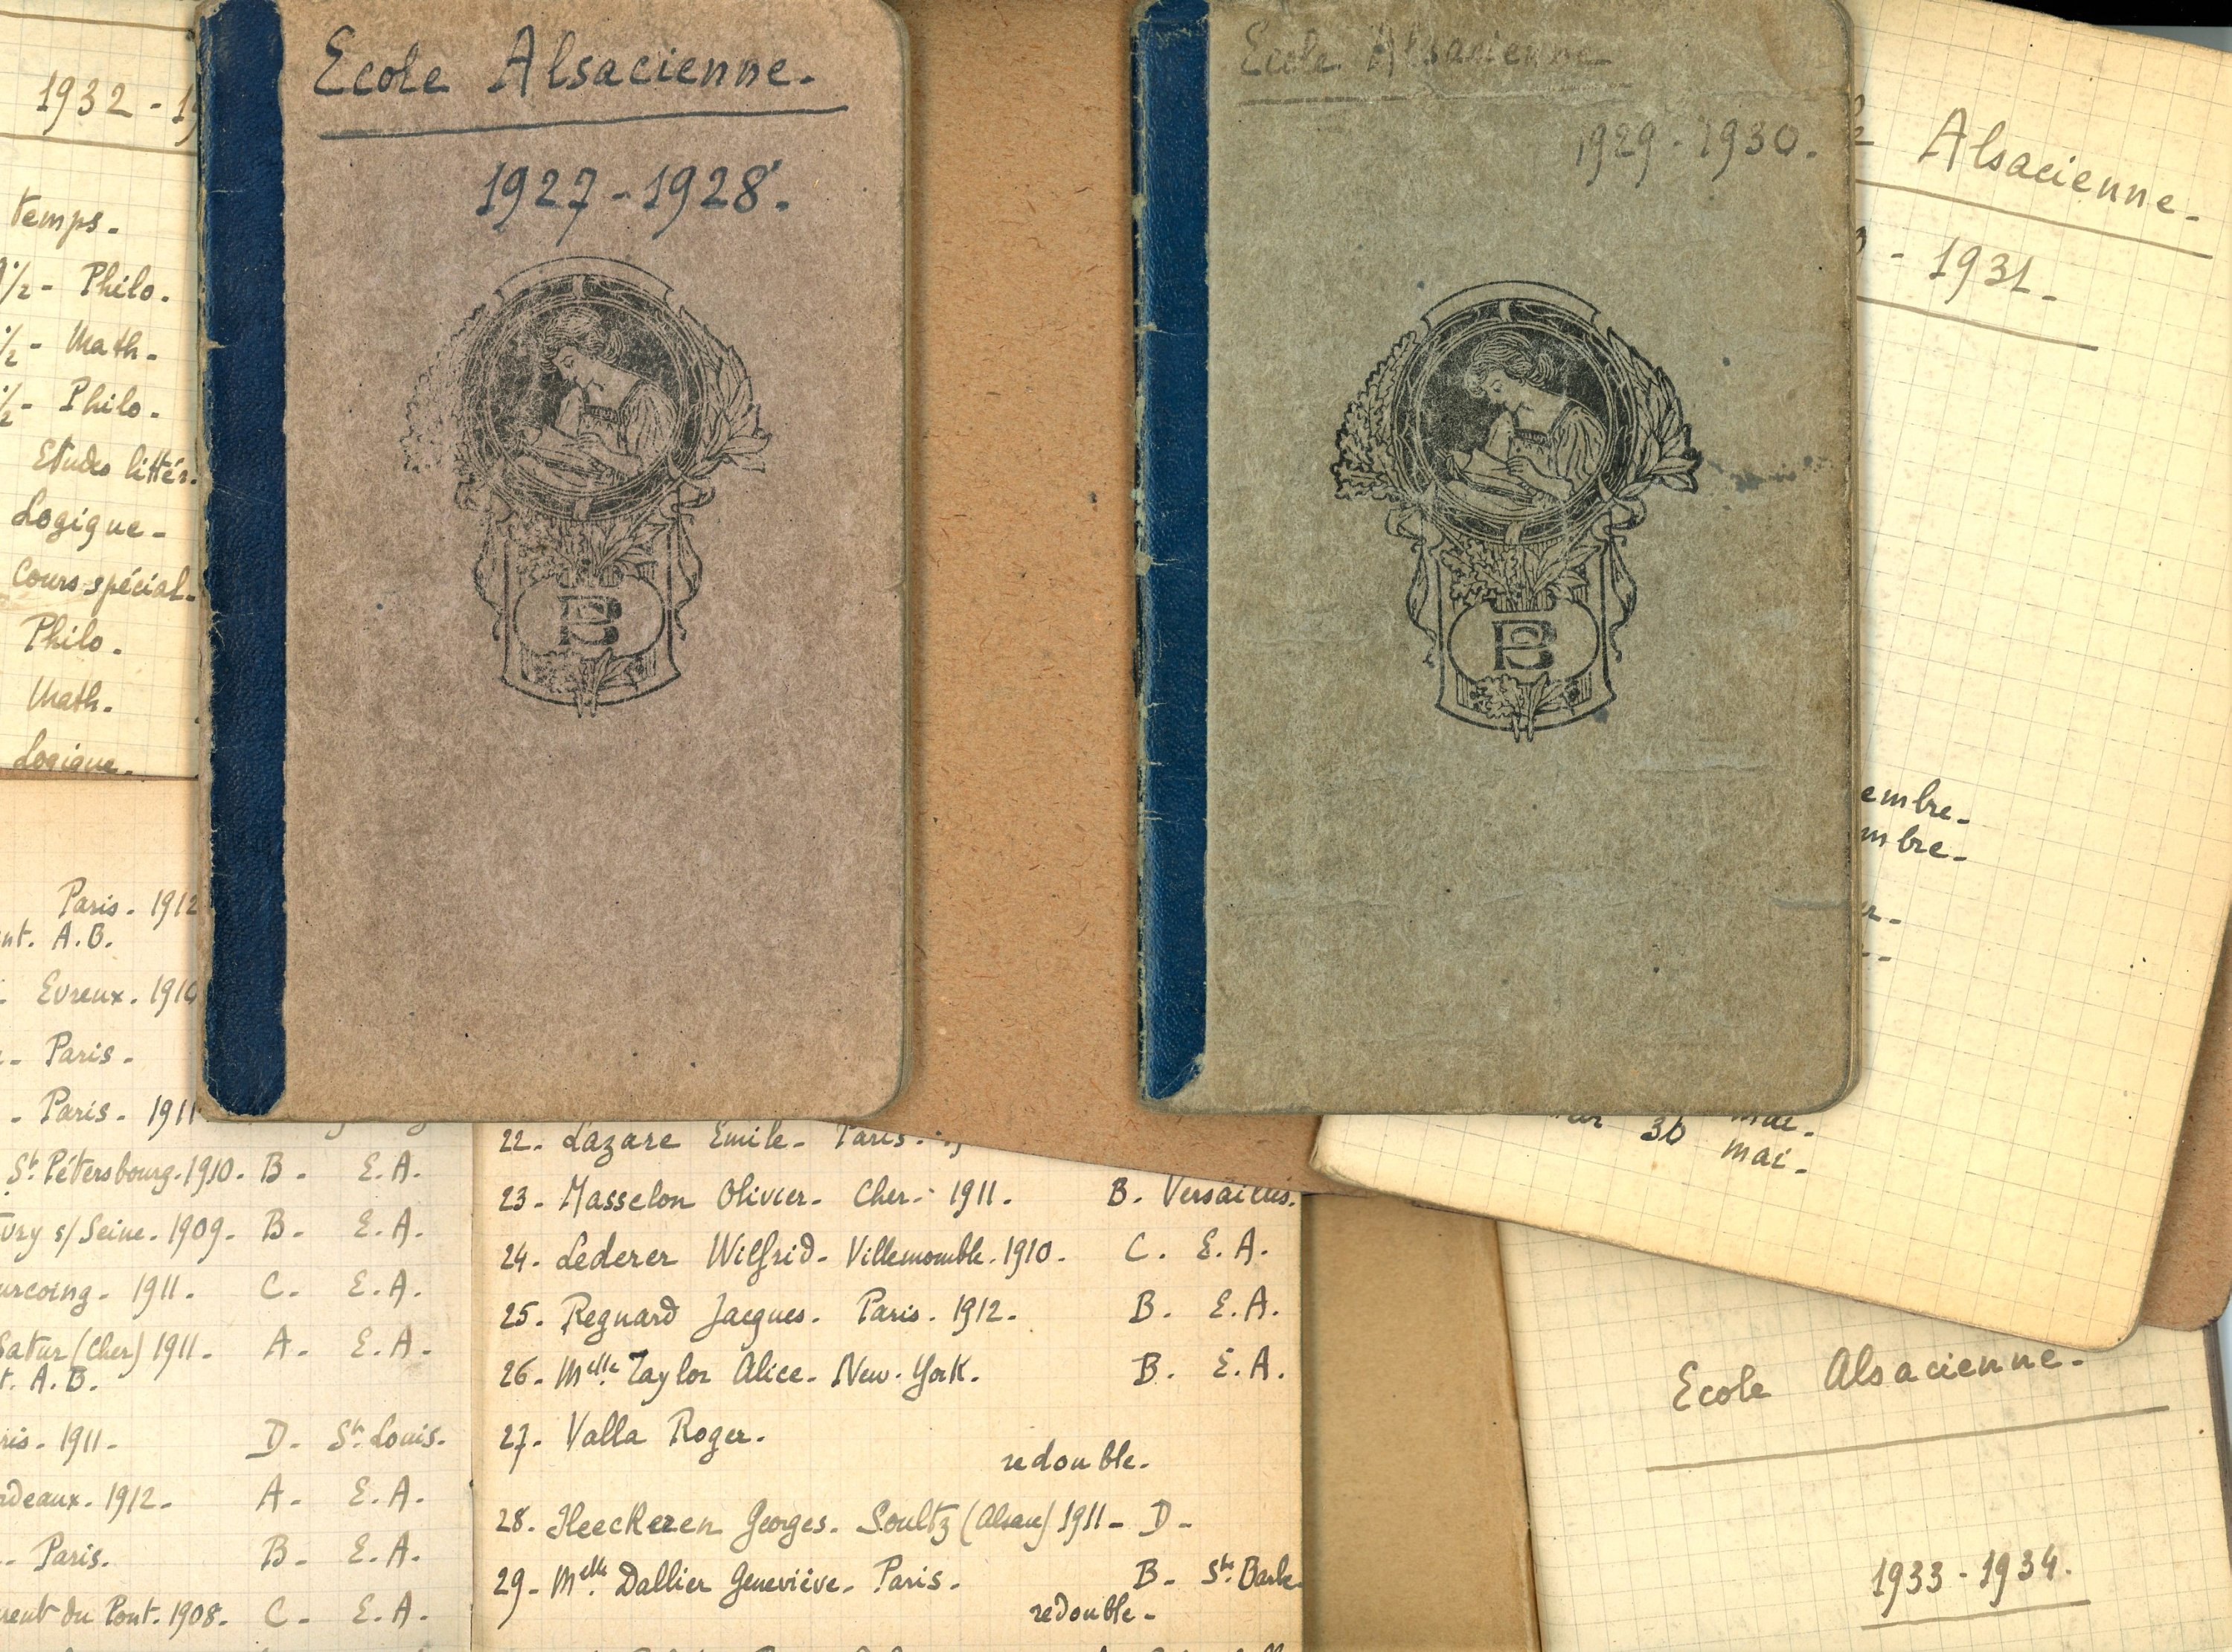 1932 - 19
temps.
1/2 - Philo.
1/2 - Math.
1/2 - Philo.
Etudes littér.
Logique -
Cours spécial.
Philo.
Math.
Logique.
Ecole Alsacienne.
1927 - 1928.
PB
Ecole Alsacienne
1929 - 1930.
PB
Alsacienne.
- 1931.
embre.
mbre.
36 mai.
mai.
Paris. 1912
nt. A.B.
Evreux. 1910
Paris.
Paris. 1911
St Pétersbourg. 1910. B. E.A.
Ivry s/Seine. 1909. B. E.A.
urcoing. 1911. C. E.A.
Satur (Cher) 1911. A. E.A.
t. A.B.
ris. 1911. D. St Louis.
rdeaux. 1912. A. E.A.
Paris. B. E.A.
rent du Pont. 1908. C. E.A.
22. Lazare Emile. Paris.
23. Masselon Olivier. Cher. 1911. B. Versailles.
24. Lederer Wilfrid. Villemomble. 1910. C. E.A.
25. Regnard Jacques. Paris. 1912. B. E.A.
26. Melle Taylor Alice. New-York. B. E.A.
27. Valla Roger.
redouble.
28. Heeckeren Georges. Soultz (Alsace) 1911 - D -
29. Melle Dallier Geneviève. Paris. B. Ste Barbe
redouble.
Ecole Alsacienne.
1933 - 1934.